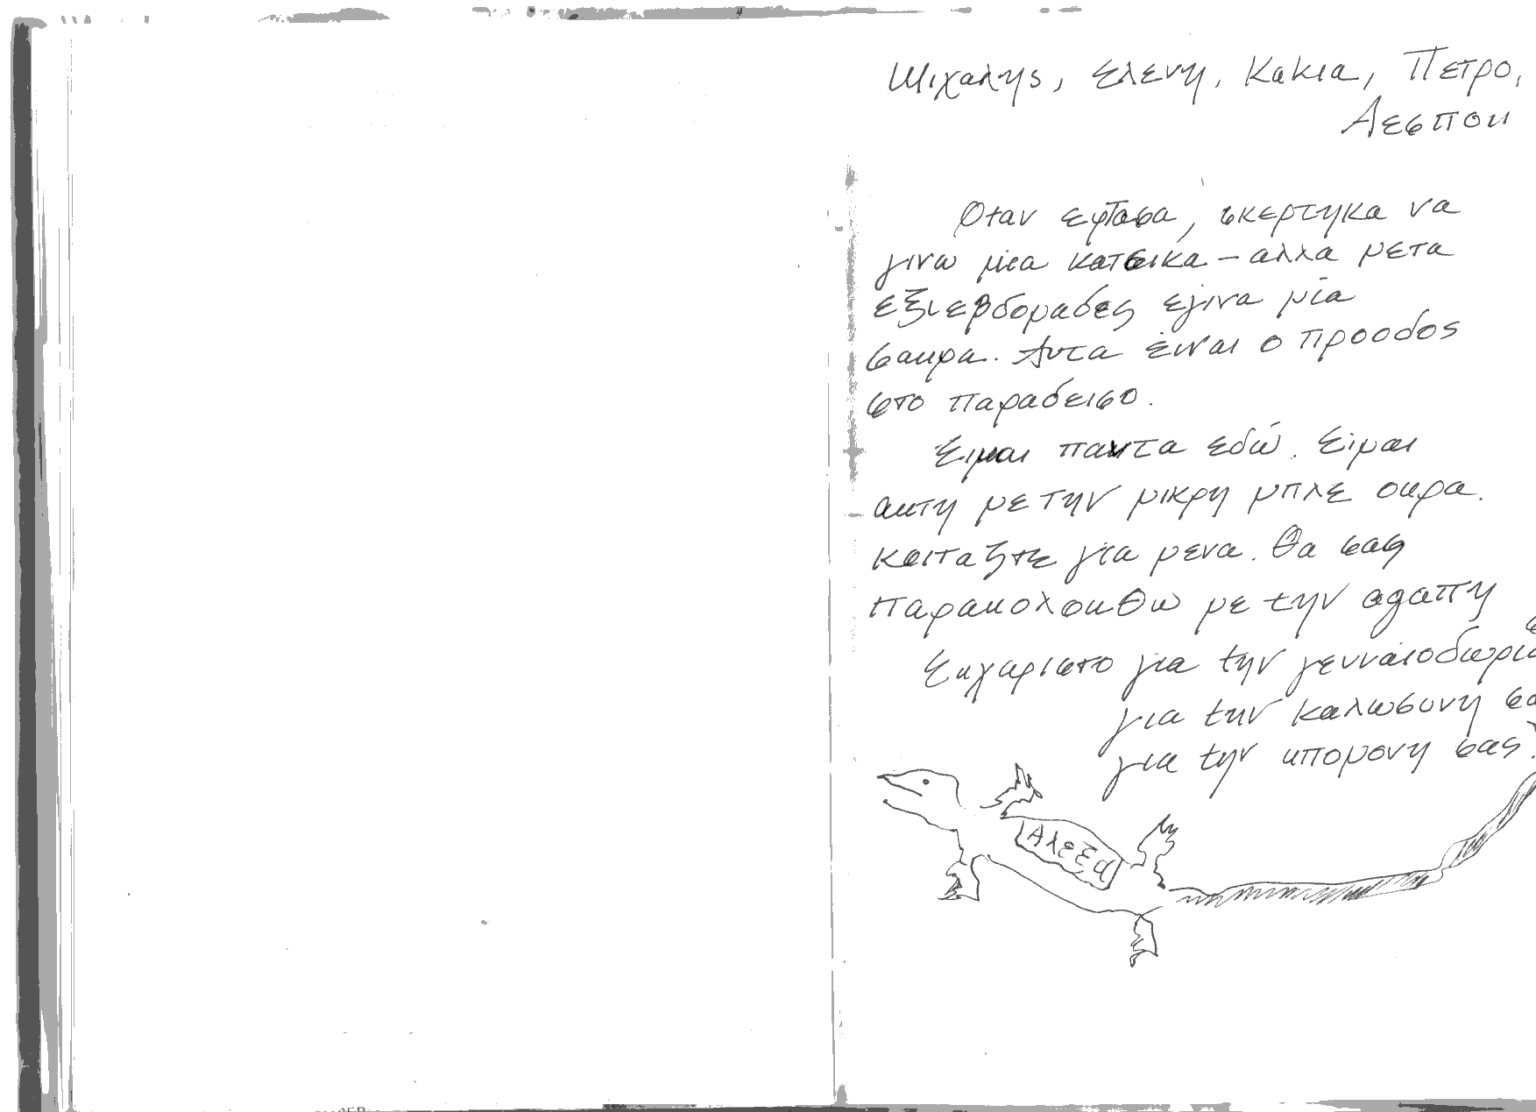 Μιχαλης, Ελενη, Κακια, Πετρο,
Δεσποι
Οταν εφτασα, σκερτηκα να
γινω μια κατσικα – αλλα μετα
εξι εβδομαδες εγινα μία
σαυρα. Αυτα ειναι ο προοδος
στο παραδεισο.
Ειμαι παντα εδώ. Ειμαι
αυτη με την μικρη μπλε ουρα.
Κοιταξτε για μενα. Θα σας
παρακολουθω με την αγαπη
Ευχαριστο για την γενναιοδωρι
για την καλωσυνη σα
για την υπομονη σας.